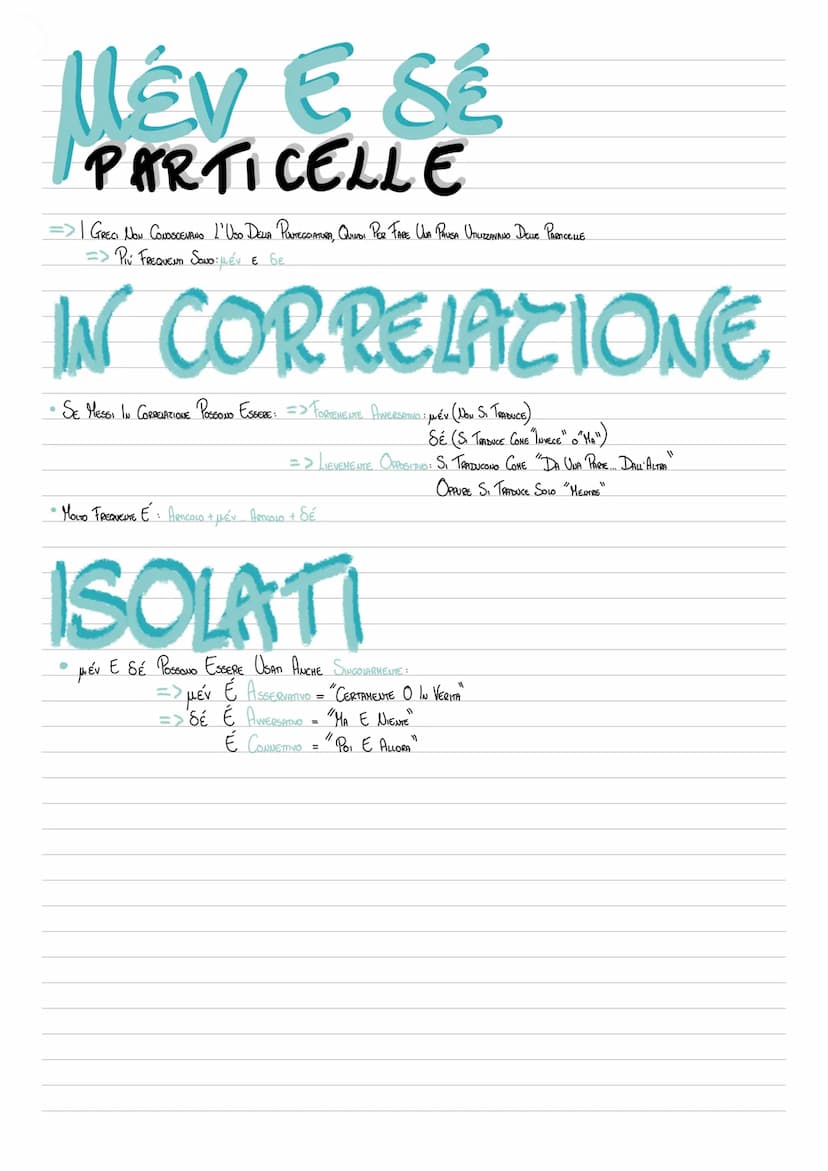 μέν E δέ
PARTICELLE
=> I GRECI NON CONOSCEVANO L'USO DELLA PUNTEGGIATURA, QUINDI PER FARE UNA PAUSA UTILIZZAVANO DELLE PARTICELLE
=> PIÚ FREQUENTI SONO: μέν E δε
IN CORRELAZIONE
• SE MESSI IN CORRELAZIONE POSSONO ESSERE: => FORTEMENTE AVVERSATIVO: μέν (NON SI TRADUCE)
δέ (SI TRADUCE COME "INVECE" O "MA")
=> LIEVEMENTE OPPOSITIVO: SI TRADUCONO COME "DA UNA PARTE... DALL'ALTRA"
OPPURE SI TRADUCE SOLO "MENTRE"
• MOLTO FREQUENTE É: ARTICOLO + μέν ... ARTICOLO + δέ
ISOLATI
• μέν E δέ POSSONO ESSERE USATI ANCHE SINGOLARMENTE:
=> μέν É ASSERVATIVO = "CERTAMENTE O IN VERITA"
=> δέ É AVVERSATIVO = "MA E NIENTE"
É CONNETTIVO = "POI E ALLORA"